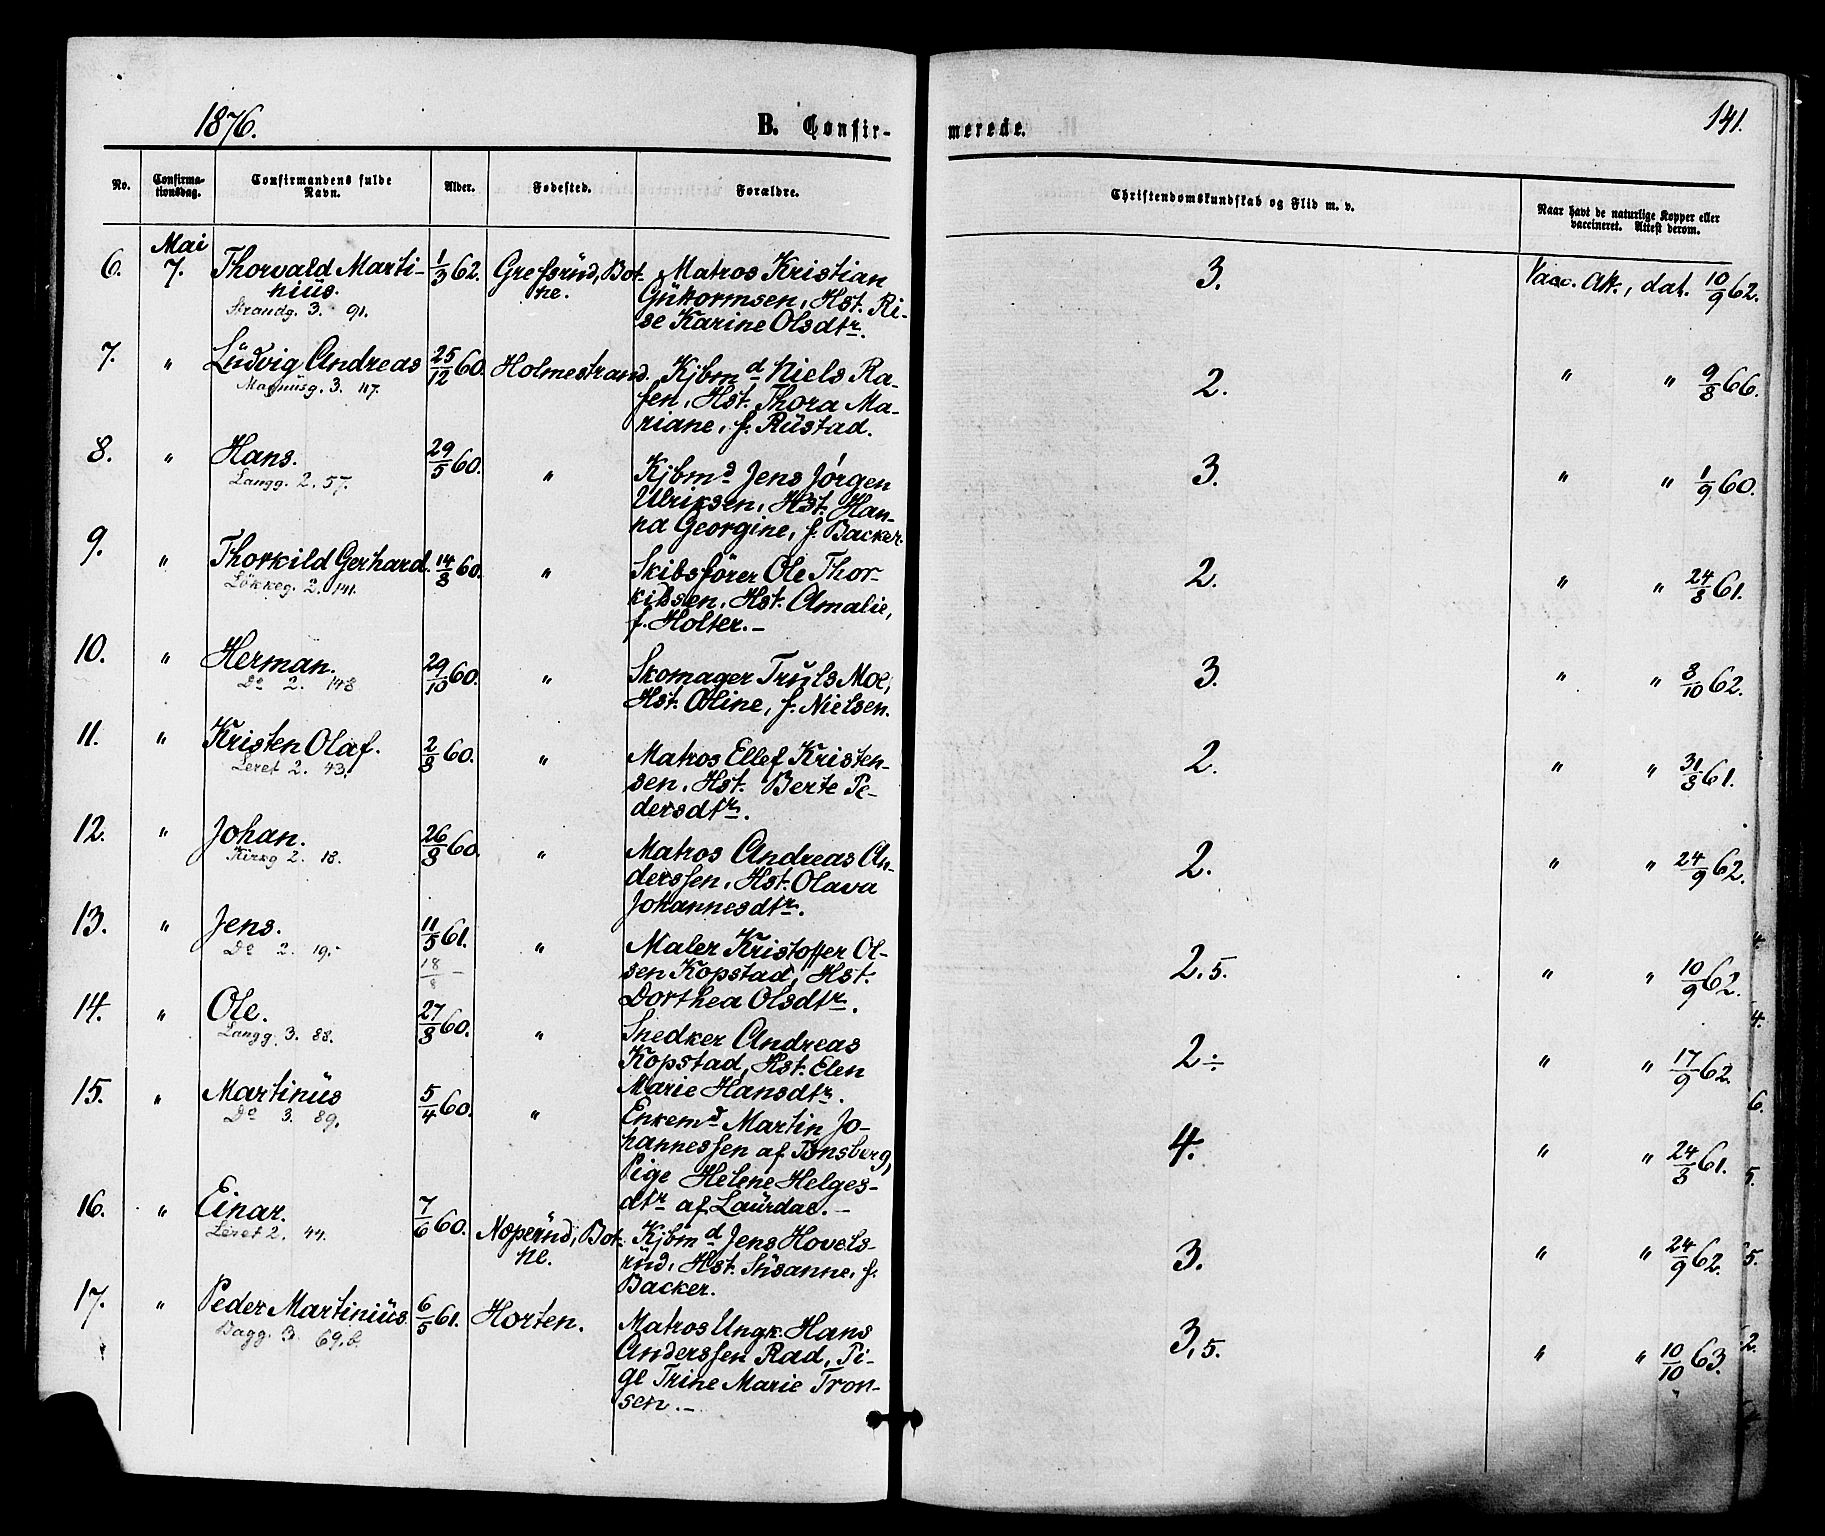 1876.
B. Confir-
merede.
141.
No.
Confirma-
tionsdag.
Confirmandens fulde
Navn.
Alder.
Fødested.
Forældre.
Christendomskundskab og Flid m. v.
Naar havt de naturlige Kopper eller
vaccineret. Attest derom.
6. Mai 7. Thorvald Marti-
nius.
Strandg. 3. 91.
1/3 62. Grefsrud, Bot-
ne.
Matros Kristian
Guttormsen, Hst. Ri-
se Karine Olsdtr.
3.
Vacc. Att., dat. 10/9 62.
7. " Ludvig Andreas
Magnusg. 3. 117.
25/12 60. Holmestrand.
Kjbmd Niels Ra-
fen, Hst. Thora Ma-
riane, f. Rustad.
2.
" " 9/8 66.
8. " Hans.
Langg. 2. 57.
29/5 60. "
Kjbmd Jens Jørgen
Ulriksen, Hst. Han-
na Georgine, f. Backer.
3.
" " 1/9 60.
9. " Thorkild Gerhard.
Løkkeg. 2. 141.
14/8 60. "
Skibsfører Ole Thor-
kildsen, Hst. Amalie,
f. Holter. —
2.
" " 24/8 61.
10. " Herman.
Do 2. 148
29/10 60. "
Skomager Truls Moe,
Hst. Oline, f. Nielsen.
3.
" " 8/10 62.
11. " Kristen Olaf.
Leret 2. 43.
2/8 60. "
Matros Ellef Kristen-
sen, Hst. Berte Pe-
dersdtr.
2.
" " 31/8 61.
12. " Johan.
Kirkg 2. 18.
26/8 60. "
Matros Andreas An-
derssen, Hst. Olava
Johannesdtr.
2.
" " 24/9 62.
13. " Jens.
Do 2. 19.
11/5 61.
18/8 —
"
Maler Kristoffer Ol-
sen Kopstad, Hst.
Dorthea Olsdtr.
2.5.
" " 10/9 62.
14. " Ole.
Langg. 3. 88.
27/8 60. "
Snedker Andreas
Kopstad, Hst. Elen
Marie Hansdtr.
2÷
" " 17/9 62.
15. " Martinus
Do 3. 89.
5/4 60. "
Enkemd Martin Jo-
hannessen af Tønsberg,
Pige Helene Helges-
dtr af Laurdal. —
4.
" " 24/8 61.
16. " Einar.
Leret 2. 44.
7/6 60. Noperud, Bot-
ne.
Kjbmd Jens Hovels-
rud, Hst. Susanne, f.
Backer.
3.
" " 24/9 62.
17. " Peder Martinius.
Bagg. 3. 69.b.
6/5 61. Horten.
Matros Ungk. Hans
Anderssen Rad, Pi-
ge Trine Marie Tron-
sen. —
3,5.
" " 10/10 63.